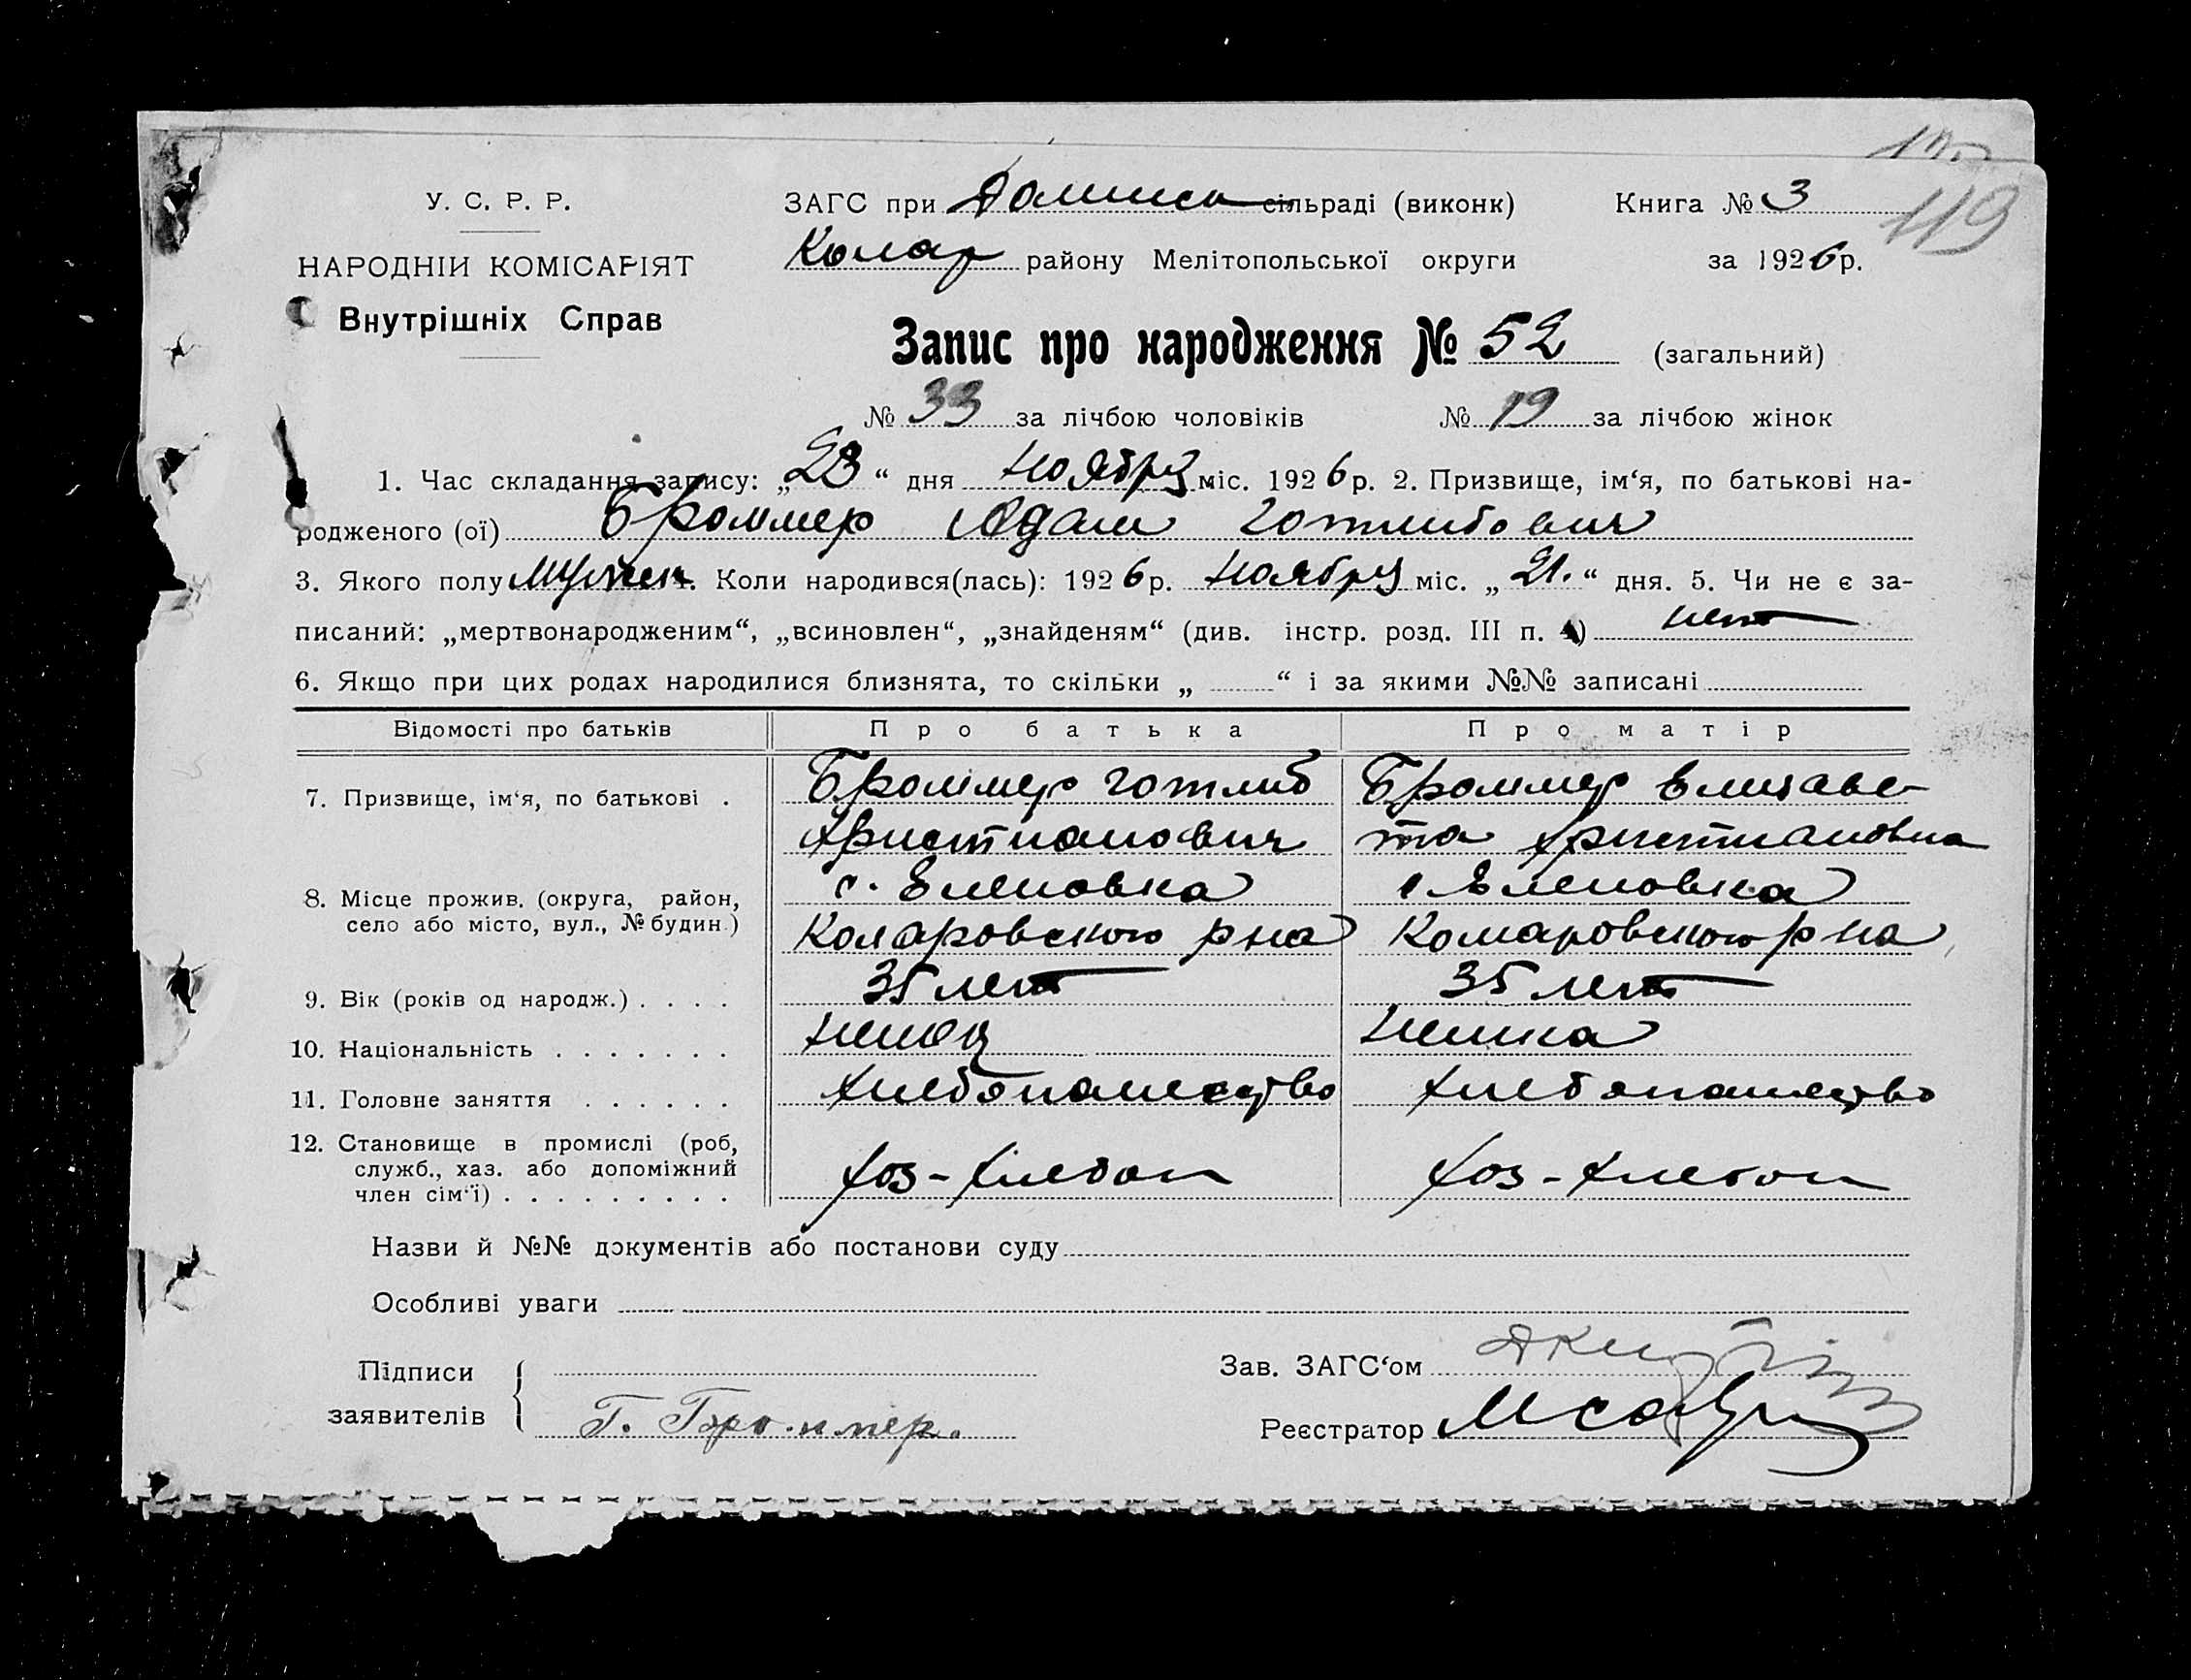 119
У. С. Р. Р.
НАРОДНІЙ КОМІСАРІЯТ
Внутрішніх Справ
ЗАГС при сільраді (виконк)
Книга № 3
Колар району Мелітопольської округи
за 1926 р.
Запис про народження № 52 (загальний)
№ 33 за лічбою чоловіків № 19 за лічбою жінок
1. Час складання запису: „23“ дня Ноября міс. 1926 р. 2. Призвище, ім‘я, по батькові на-
родженого (ої) Броммер Адам Готлибович
3. Якого полу Мужск 4. Коли народився(лась): 1926 р. Ноября міс. „21.“ дня. 5. Чи не є за-
писаний: „мертвонародженим“, „всиновлен“, „знайденям“ (див. інстр. розд. III п. 4) нет
6. Якщо при цих родах народилися близнята, то скільки „ “ і за якими №№ записані
Відомості про батьків Про батька Про матір
7. Призвище, ім‘я, по батькові . Броммер Готлиб Броммер Елизаве-
Христианович та Христиановна
8. Місце прожив. (округа, район, с. Еленовка с. Еленовка
село або місто, вул., № будин.) Коларовского рна Коларовского рна
9. Вік (років од народж.) . . . . 35 лет 35 лет
10. Національність . . . . . . . Немец Немка
11. Головне заняття . . . . . . Хлебопашество Хлебопашество
12. Становище в промислі (роб,
служб., хаз. або допоміжний Хоз-хлебоп Хоз-хлебоп
член сім‘ї) . . . . . . . . .
Назви й №№ документів або постанови суду
Особливі уваги
Підписи
заявителів Г. Броммер.
Зав. ЗАГС‘ом
Реєстратор